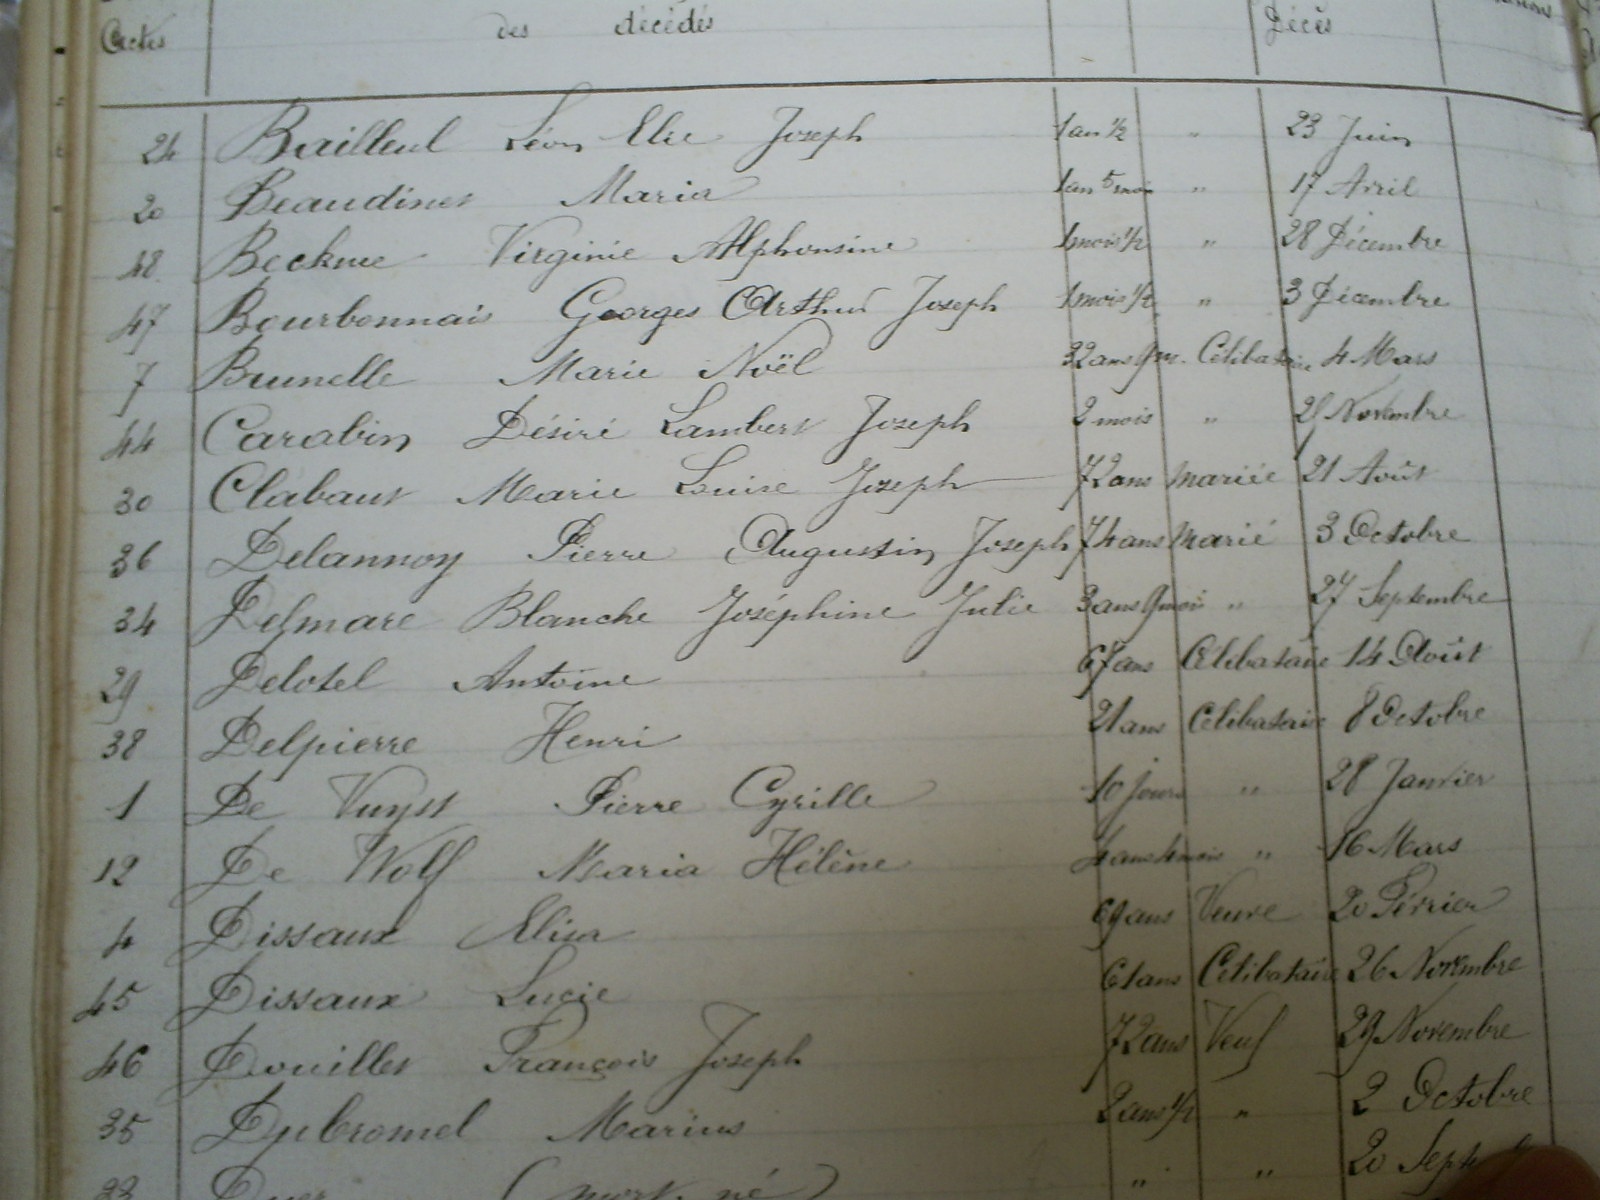 Actes des décédés Décès
24 Bailleul Léon Elie Joseph 1 an ½ " 23 Juin
20 Beaudinet Maria 1 an 5 mois " 17 Avril
48 Beckue Virginie Alphonsine 1 mois ½ " 28 Décembre
47 Bourbonnais Georges Arthur Joseph 1 mois ½ " 3 Décembre
7 Brunelle Marie Noël 32 ans 9 m. Célibataire 4 Mars
44 Carabin Désiré Lambert Joseph 2 mois " Novembre
30 Clabaut Marie Louise Joseph 72 ans mariée 21 Août
36 Delannoy Pierre Augustin Joseph 74 ans marié 3 Octobre
34 Delmare Blanche Joséphine Julie 3 ans 9 mois " 27 Septembre
29 Delotel Antoine 67 ans Célibataire 14 Août
38 Delpierre Henri 21 ans Célibataire 8 Octobre
1 De Vuyst Pierre Cyrille 10 jours " 28 Janvier
12 De Wolf Maria Hélène 4 ans 4 mois " 16 Mars
4 Dissaux Elisa 69 ans Veuve 20 Février
45 Dissaux Lucie 61 ans Célibataire 26 Novembre
46 Douillet François Joseph 72 ans Veuf 29 Novembre
35 Dubromel Marius 2 ans ½ " 2 Octobre
(mort-né) " " 20